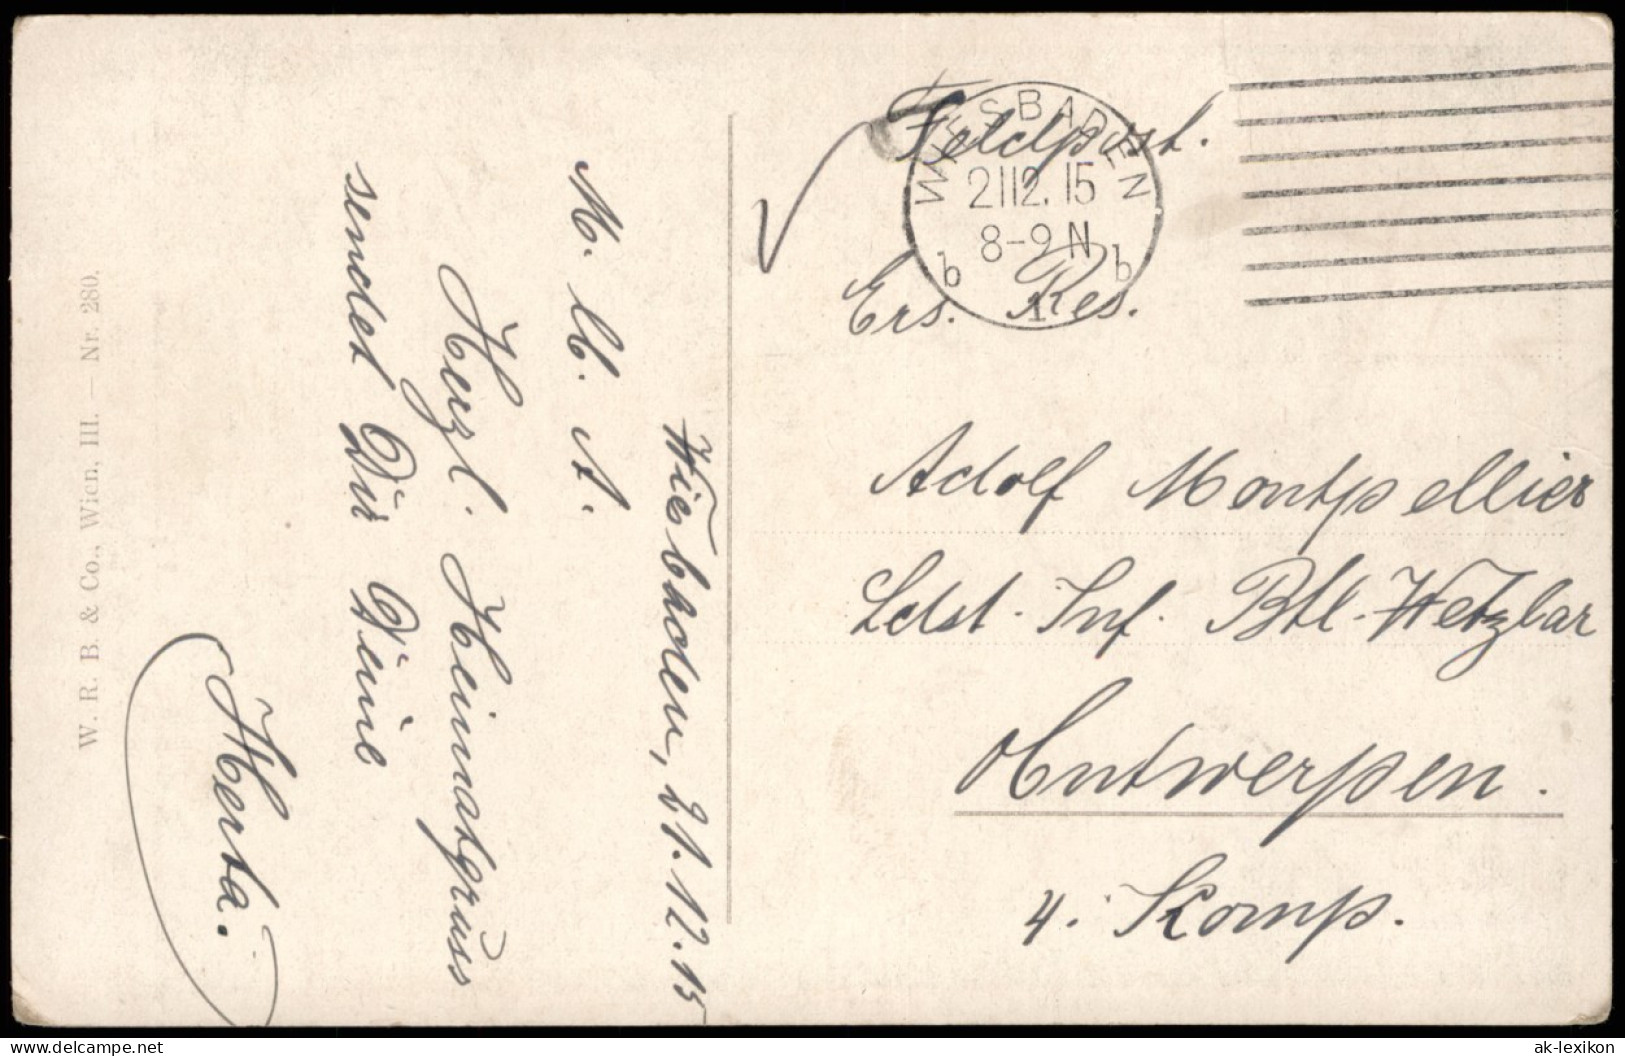 Wiesbaden, 21.12.15
M. lb. A.
Herzl. Heimatgruss
sendet Dir Deine
Herta.
W. R. B. & Co., Wien, III. — Nr. 280.
Feldpost.
WIESBADEN
21 12. 15
8-9 N
b b
1
Ers. Res.
Adolf Montpellier
Ldst. Inf. Btl. Wetzlar
Antwerpen.
4. Komp.
delcampe.net
ak-lexikon